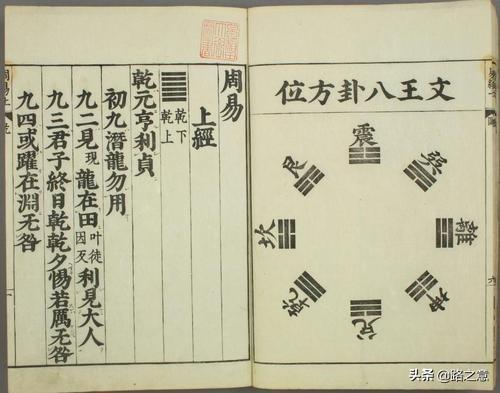 文王八卦方位
震
巽
離
坤
兌
乾
坎
艮
周易
上經
䷀ 乾下
乾上
乾元亨利貞
初九潛龍勿用
九二見現龍在田叶徒因反利見大人
九三君子終日乾乾夕惕若厲无咎
九四或躍在淵无咎
周易上
乾
头条 @路之意